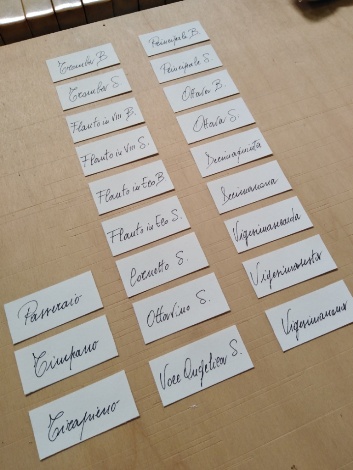 Tromba B.
Tromba S.
Flauto in VIII B.
Flauto in VIII S.
Flauto in Eco B.
Flauto in Eco S.
Cornetto S.
Ottavino S.
Voce Angelica S.
Principale B.
Principale S.
Ottava B.
Ottava S.
Decimaquinta
Decimanona
Vigesimaseconda
Vigesimasesta
Vigesimanona
Passeraio
Timpano
Tirapieno